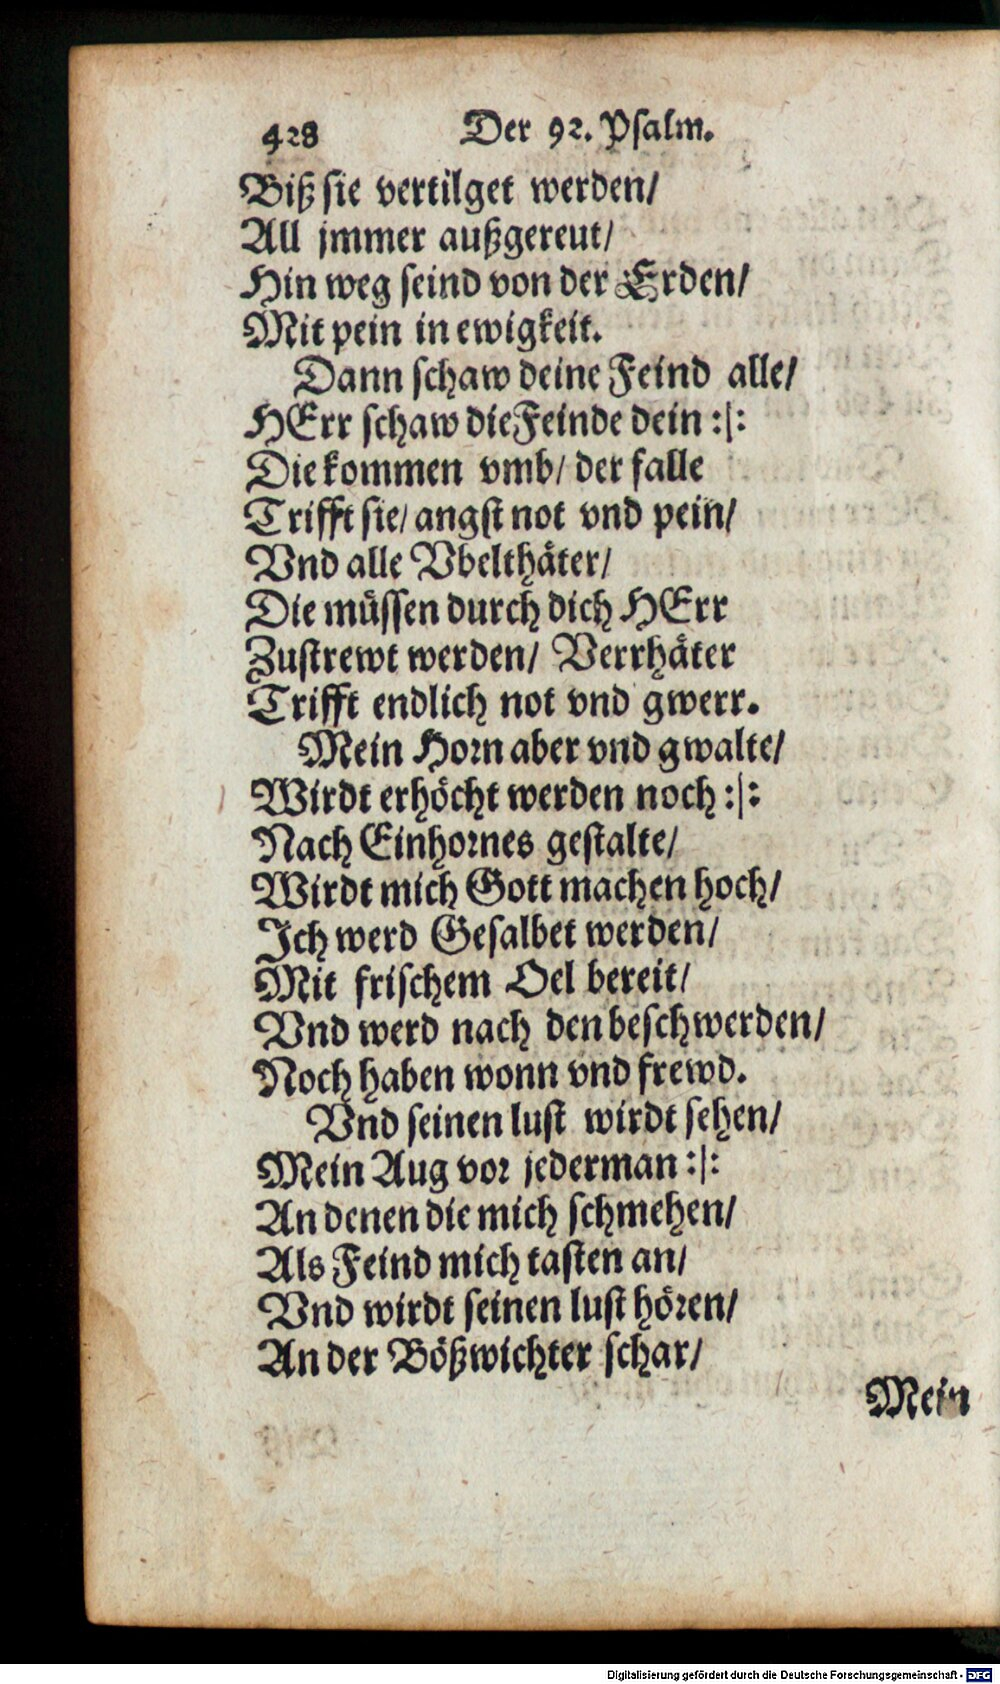 428 Der 92. Psalm.
Biß sie vertilget werden/
All jmmer außgereut/
Hin weg seind von der Erden/
Mit pein in ewigkeit.
Dann schaw deine Feind alle/
HErr schaw die Feinde dein :|:
Die kommen vmb/ der falle
Trifft sie/ angst not vnd pein/
Vnd alle Vbelthäter/
Die müssen durch dich HErr
Zustrewt werden/ Verrhäter
Trifft endlich not vnd gwerr.
Mein Horn aber vnd gwalte/
Wirdt erhöcht werden noch :|:
Nach Einhornes gestalte/
Wirdt mich Gott machen hoch/
Ich werd Gesalbet werden/
Mit frischem Oel bereit/
Vnd werd nach den beschwerden/
Noch haben wonn vnd frewd.
Vnd seinen lust wirdt sehen/
Mein Aug vor jederman :|:
An denen die mich schmehen/
Als Feind mich tasten an/
Vnd wirdt seinen lust hören/
An der Bößwichter schar/
Mein
Digitalisierung gefördert durch die Deutsche Forschungsgemeinschaft - DFG